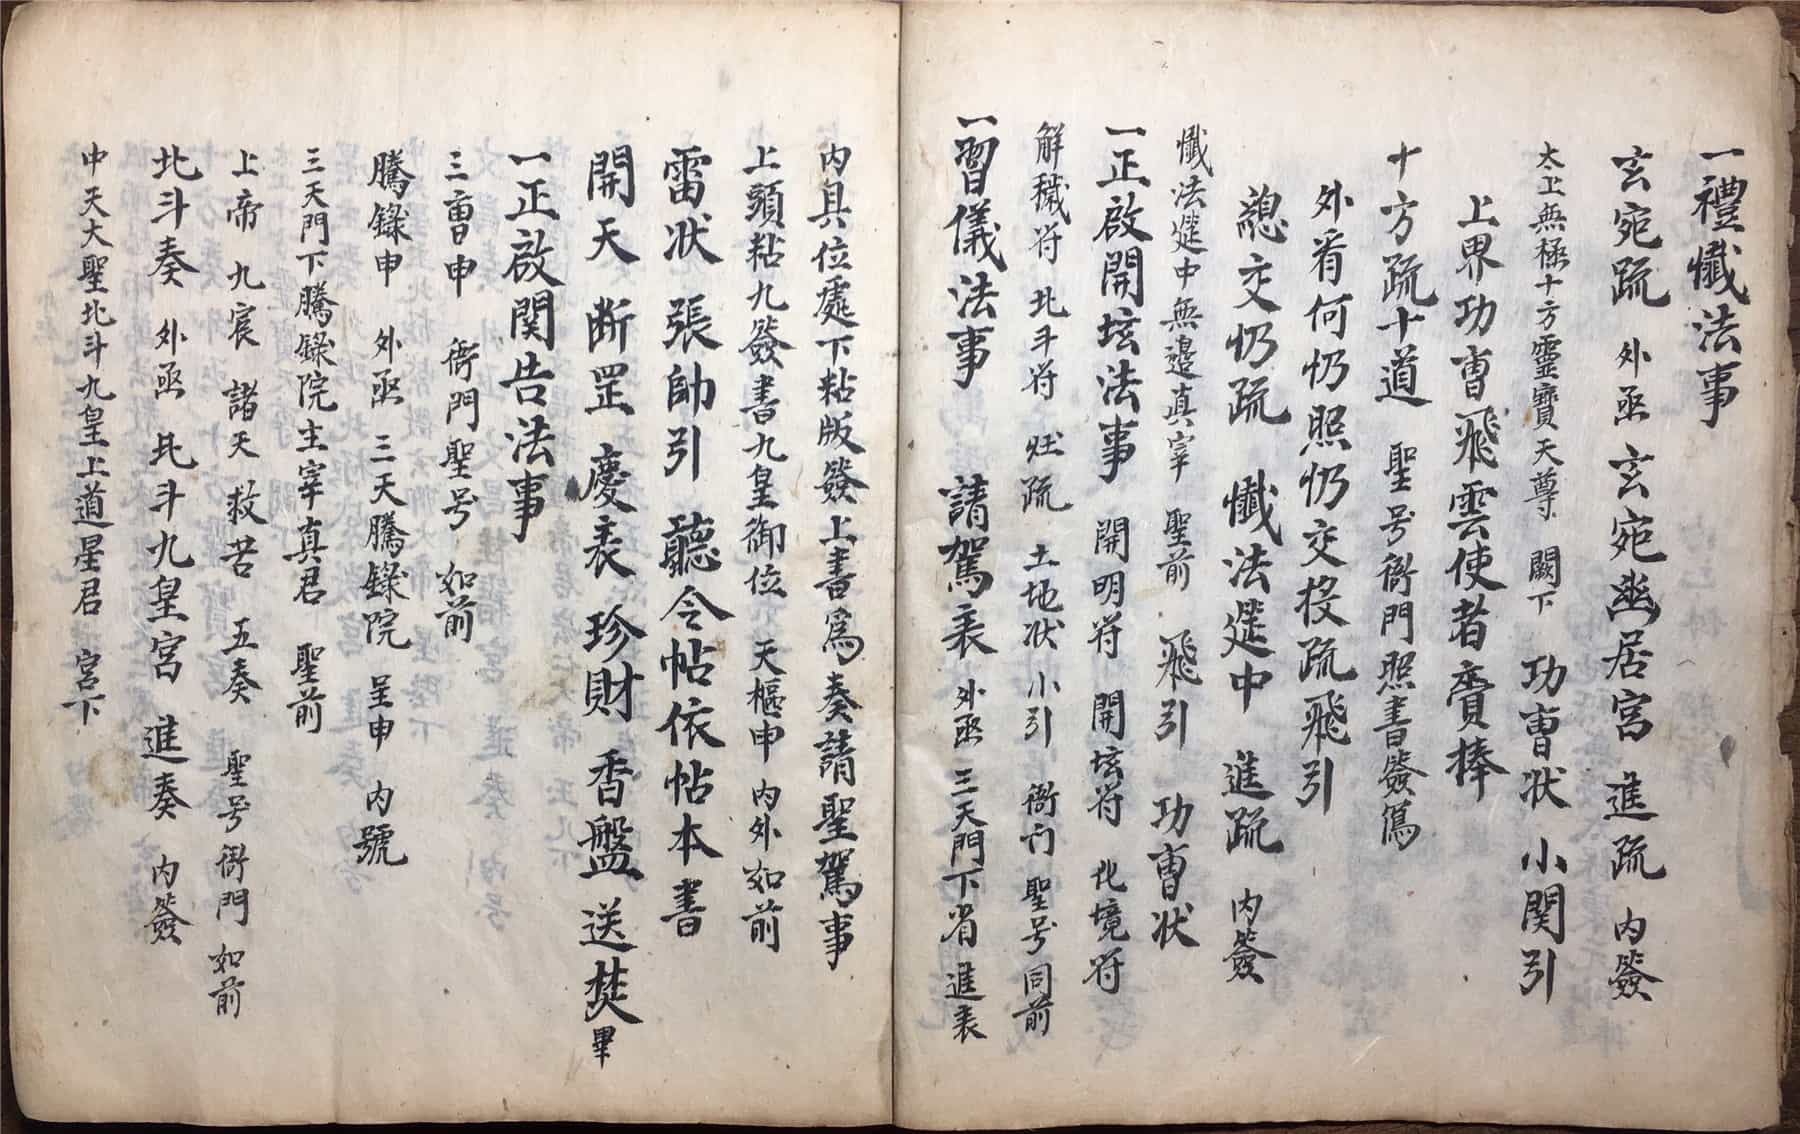 一禮懺法事
玄宛疏 外函 玄宛幽居宮 進疏 内簽
太上無極十方靈寶天尊 闕下 功曹狀 小関引
上界功曹飛雲使者賫捧
十方疏十道 聖号衙門照書簽為
外看何仍照仍交投疏飛引
總交仍疏 懺法筵中 進疏 内簽
懺法筵中無邊真宰 聖前 飛引 功曹状
一正啟開坛法事 開明符 開坛符 化境符
解穢符 北斗符 灶疏 土地状 小引 衙门 聖号同前
一習儀法事 請駕表 外函 三天門下省 進表
内具位處下粘版簽上書為奏請聖駕事
上頭粘九簽書九皇御位 天樞申 内外如前
雷状 張帥引 聽令帖依帖本書
開天 断罡 慶表 珍財 香盤 送焚畢
一正啟関告法事
三曹申 衙門聖号 如前
騰錄申 外函 三天騰錄院 呈申 内號
三天門下騰錄院主宰真君 聖前
上帝 九宸 諸天 救苦 五奏 聖号衙門 如前
北斗奏 外函 北斗九皇宮 進奏 内簽
中天大聖北斗九皇上道星君 宮下